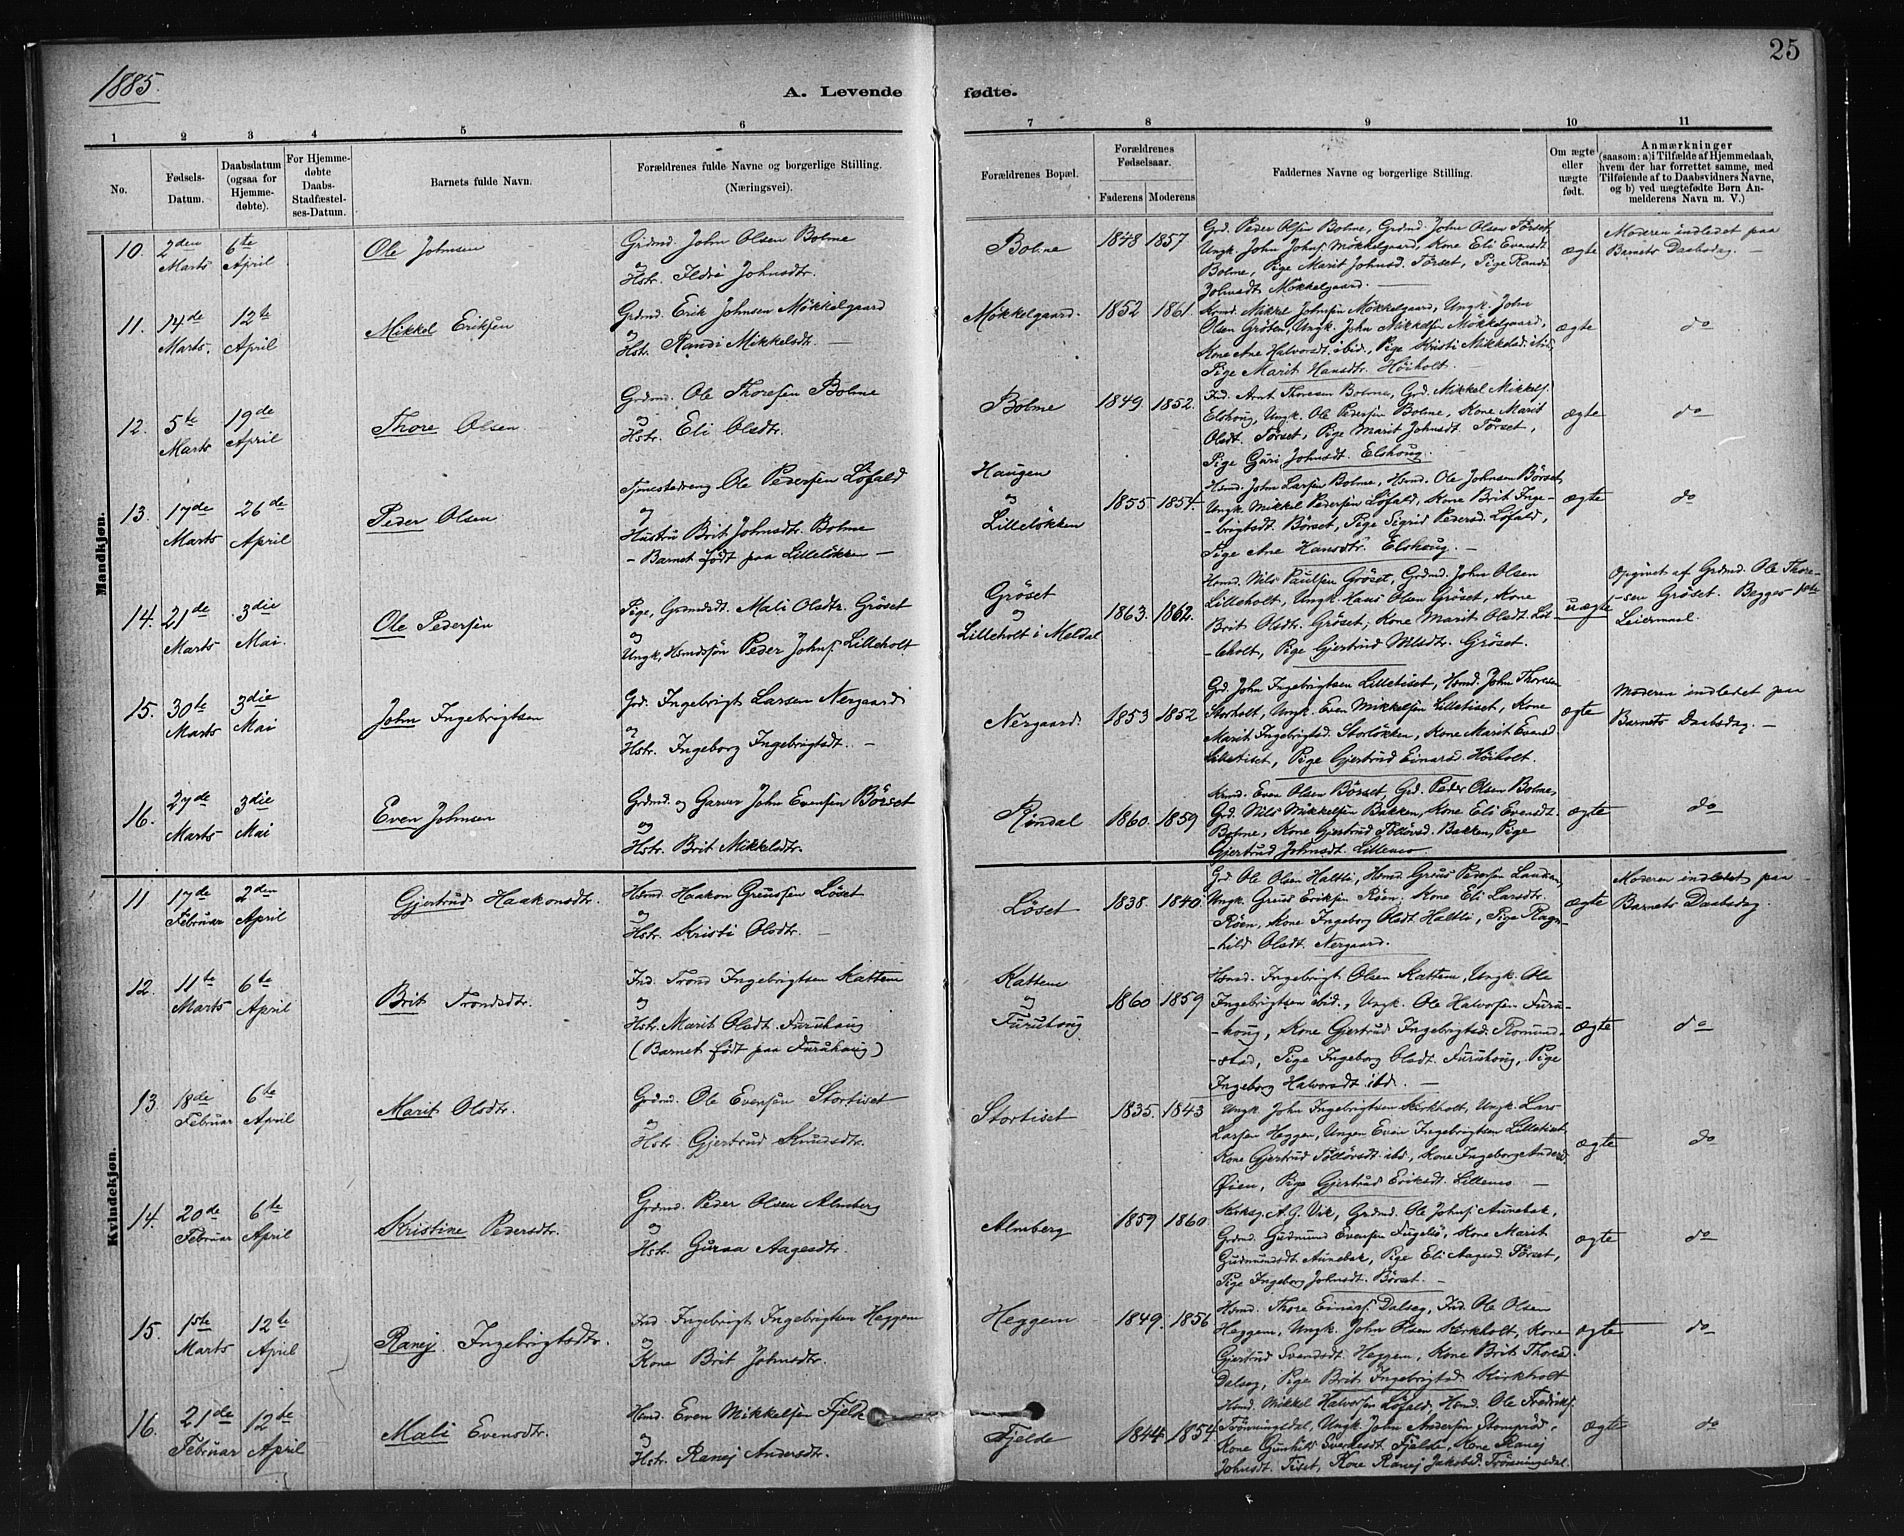 1885.
25
A. Levende fødte.
1 2 3 4 5 6 7 8 9 10 11
No.
Fødsels-
Datum.
Daabsdatum
(ogsaa for
Hjemme-
døbte).
For Hjemme-
døbte
Daabs-
Stadfæstel-
ses-Datum.
Barnets fulde Navn.
Forældrenes fulde Navne og borgerlige Stilling.
(Næringsvei).
Forældrenes Bopæl.
Forældrenes
Fødselsaar.
Faderens Moderens
Faddernes Navne og borgerlige Stilling.
Om ægte
eller
uægte
født.
Anmærkninger
(saasom: a) i Tilfælde af Hjemmedaab,
hvem der har forrettet samme, med
Tilføiende af to Daabsvidners Navne,
og b) ved uægtefødte Børn An-
melderens Navn m. V.)
Mandkjøn.
10.
2den
Marts
6te
April
Ole Johnsen
Grdmd. John Olsen Bolme
og
Hstr. Ildri Johnsdtr.
Bolme
1848 1857
Grd. Peder Olsen Bolme, Grdmd. John Olsen Törset,
Ungk. John Johns. Møkkelgaard, Kone Eli Evensdt.
Bolme, Pige Marit Johnsd. Törset, Pige Randi
Johnsdt. Møkkelgaard. —
ægte
Moderen indledet paa
Barnets Daabsdag. —
11.
14de
Marts.
12te
April
Mikkel Eriksen
Grdmd. Erik Johnsen Møkkelgaard
og
Hstr. Randi Mikkelsdt. —
Møkkelgaard.
1852 1861.
Krmd. Mikkel Johnsen Møkkelgaard, Ungk. John
Olsen Gröten, Ungk. John Mikkelsen Møkkelgaard,
Kone Ane Halvorsdt. ibid., Pige Kristi Mikkelsd. ibid.
Pige Marit Hansdtr. Höiholt. —
ægte
do
12.
5te
Marts
19de
April
Thore Olsen
Grdmd. Ole Thoresen Bolme
og
Hstr. Eli Olsdtr.
Bolme
1849 1852.
Ind. Arnt Thoresen Bolme, Grd. Mikkel Mikkels.
Elshoug, Ungk. Ole Pedersen Bolme, Kone Marit
Olsdt. Törset, Pige Marit Johnsdt. Törset,
Pige Guri Johnsdt. Elshoug.
ægte
do
13.
17de
Marts
26de
April
Peder Olsen
Tjenestedreng Ole Pedersen Löfald
og
Hustru Brit Johnsdtr. Bolme
— Barnet født paa Lilleløkken —
Haugen
og
Lilleløkken
1855. 1854.
Hsmd. John Larsen Bolme, Hsmd. Ole Johnsen Börset,
Ungk. Mikkel Pedersen Löfald, Kone Brit Inge-
-brigtsdt. Börset, Pige Sigrid Pedersd. Löfald,
Pige Ane Hansdtr. Elshoug. —
ægte
do
14.
21de
Marts
3die
Mai.
Ole Pedersen
Pige, Grmdsdt. Mali Olsdtr. Gröset
og
Ungk, Hsmdssön Peder Johns. Lilleholt
Gröset
og
Lilleholt i Meldal
1863. 1862.
Hsmd. Nils Paulsen Gröset, Grdmd. John Olsen
Lilleholt, Ungk. Hans Olsen Gröset, Kone
Brit Olsdtr. Gröset, Kone Marit Olsdt. Lil-
-leholt, Pige Gjertrud Nilsdtr. Gröset.
uægte
Opgivet af Grdmd. Ole Thore-
-sen Gröset. Begges 1ste
Leiermaal.
15.
30te
Marts
3die
Mai
John Ingebrigtsen
Grd. Ingebrigt Larsen Nergaard
og
Hstr. Ingeborg Ingebrigtsdt. —
Nergaard.
1853 1852
Grd. John Ingebrigtsen Lilletiset, Hsmd. John Thoresen
Storholt, Ungk. Even Mikkelsen Lilletiset, Kone
Marit Ingebrigtsd. Storløkken, Kone Marit Evensd.
Lilletiset, Pige Gjertrud Einarsd. Höiholt.
ægte
Moderen indledet paa
Barnets Daabsdag. —
16.
27de
Marts
3die
Mai
Even Johnsen
Grdmd. og Garver John Evensen Börset
og
Hstr. Brit Mikkelsdtr.
Rindal
1860. 1859
Krmd. Even Olsen Börset, Grd. Peder Olsen Bolme,
Grd. Nils Mikkelsen Bakken, Kone Eli Evensdt.
Bolme, Kone Gjertrud Tollövsd. Bakken, Pige
Gjertrud Johnsdt. Lillemo
ægte
do
Kvindekjøn.
11
17de
Februar
2den
April
Gjertrud Haakonsdtr.
Hsmd. Haakon Greussen Löset
og
Hstr. Kristi Olsdtr. —
Löset
1838. 1840.
Grd. Ole Olsen Haltli, Hsmd. Greus Pedersen Lauken,
Ungk. Greus Eriksen Röen, Kone Eli Larsdtr.
Röen, Kone Ingeborg Olsdt. Haltli, Pige Ragn-
-hild Olsdt. Nergaard.
ægte
Moderen indledet paa
Barnets Daabsdag.
12.
11te
Marts
6te
April
Brit Trondsdtr.
Ind. Trond Ingebrigtsen Kattem
og
Hstr. Marit Olsdt. Furuhoug
(Barnet født paa Furuhoug)
Kattem
og
Furuhoug
1860 1859
Hsmd. Ingebrigt Olsen Kattem, Ungk. Ole
Ingebrigtsen ibid., Ungk. Ole Halvorsen Furu-
-houg, Kone Gjertrud Ingebrigtsd. Romund-
-stad, Pige Ingeborg Olsdt. Furuhoug, Pige
Ingeborg Halvorsdt. ibd. —
ægte
do
13.
18de
Februar
6te
April
Marit Olsdtr.
Grdmd. Ole Evensen Stortiset
og
Hstr. Gjertrud Knudsdtr.
Stortiset
1835. 1843
Ungk. John Ingebrigtsen Kirkholt, Ungk. Lars
Larsen Heggem, Ungk. Even Ingebrigtsen Lilletiset
Kone Gjertrud Tollövsdt. ibd, Kone Ingeborg Andersd.
Øien, Pige Gjertrud Eriksdt. Lillemo —
ægte
do
14.
20de
Februar
6te
April
Kristine Pedersdtr.
Grdmd. Peder Olsen Almberg
og
Hstr. Guraa Aagesdtr.
Almberg
1859 1860.
Kirksg. A. G. Vik, Grdmd. Ole Johns. Aunebak,
Grdmd. Gudmund Evensen Fugelsö, Kone Marit
Gudmundsdt. Aunebak, Pige Eli Aagesd. Törset,
Pige Ingeborg Johnsdt. Börset. —
ægte
do
15.
1ste
Marts
12te
April
Ranej Ingebrigtsdtr.
Ind. Ingebrigt Ingebrigtsen Heggem
og
Kone Brit Johnsdtr.
Heggem
1849. 1856
Hsmd. Thore Einars. Dalseg, Ind. Ole Olsen
Heggem, Ungk. John Olsen Kirkholt, Kone
Gjertrud Svendsdt. Heggem, Kone Brit Thoresd.
Dalseg, Pige Brit Ingebrigtsd. Kirkholt
ægte
do
16.
21de
Februar
12te
April
Mali Evensdtr.
Hsmd. Even Mikkelsen Fjelde
og
Hstr. Ranej Andersdtr.
Fjelde
1844. 1854
Hsmd. Mikkel Halvorsen Löfald, Hsmd. Ole Fredriks.
Trönningsdal, Ungk. John Andersen Stomprud,
Kone Gunhild Sverkesdt. Fjelde, Kone Ranej
Johnsdt. Tiset, Kone Ranej Jakobsd. Trönningsdal.
ægte
do